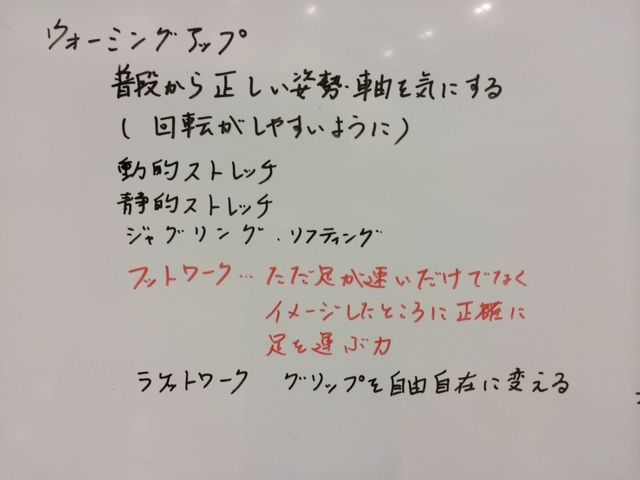 ウォーミングアップ
普段から正しい姿勢・軸を気にする
(回転がしやすいように)
動的ストレッチ
静的ストレッチ
ジャグリング・リフティング
フットワーク…ただ足が速いだけでなく
イメージしたところに正確に
足を運ぶ力
ラケットワーク グリップを自由自在に変える